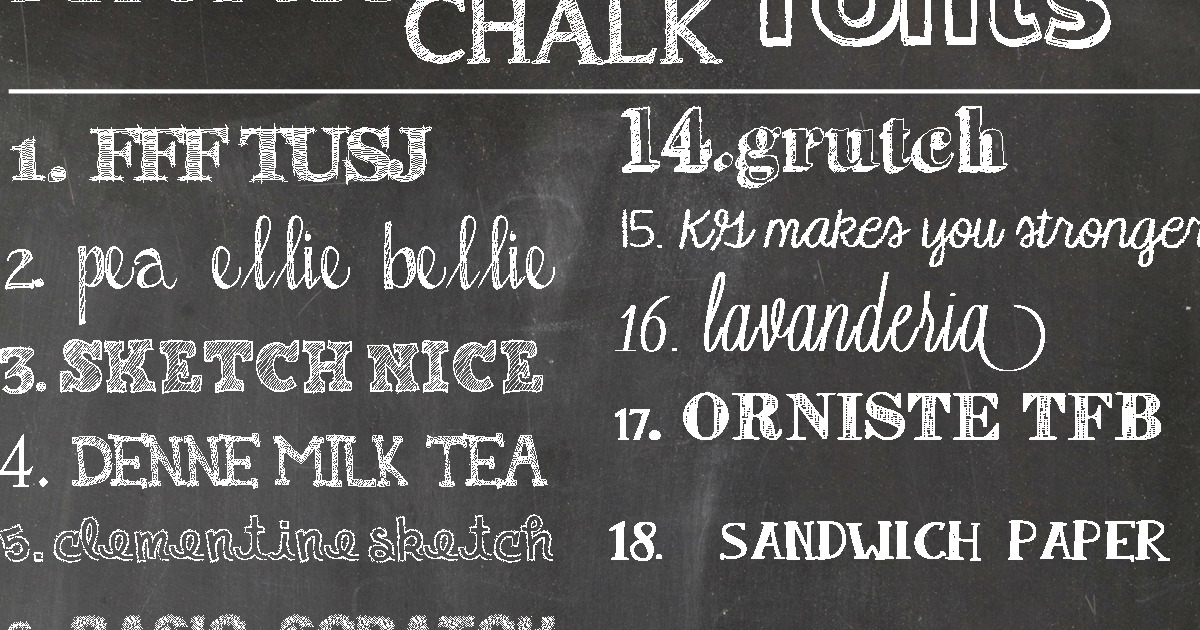 CHALK fonts
1. FFF TUSJ
2. pea ellie bellie
3. SKETCH NICE
4. DENNE MILK TEA
5. clementine sketch
6. BASIC SCRATCH
14. grutch
15. KG makes you stronger
16. lavanderia
17. ORNISTE TFB
18. SANDWICH PAPER